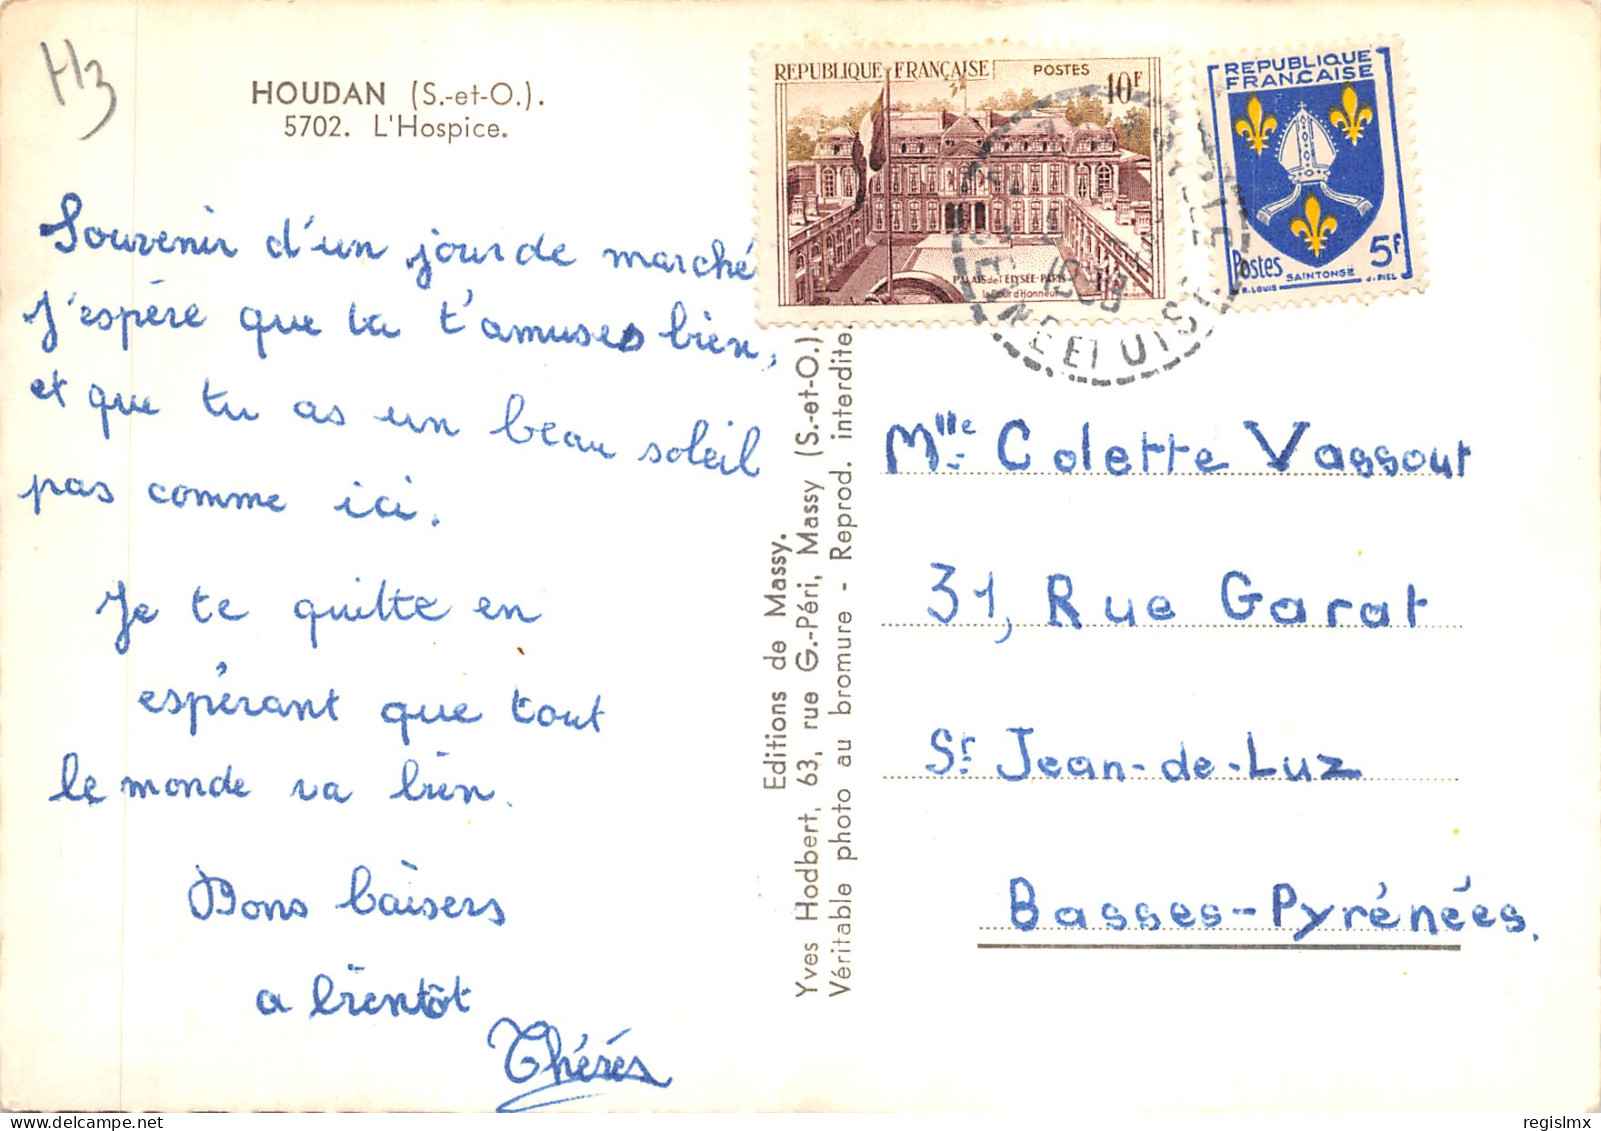 H3
HOUDAN (S.-et-O.).
5702. L'Hospice.
Souvenir d'un jour de marché
J'espére que tu t'amuses bien,
et que tu as un beau soleil
pas comme ici.
Je te quitte en
espérant que tout
le monde va bien.
Bons baisers
a bientôt
Thérés
Editions de Massy.
Yves Hodbert, 63, rue G.-Péri, Massy (S.-et-O.)
Véritable photo au bromure - Reprod. interdite.
REPUBLIQUE FRANÇAISE POSTES 10F
PALAIS de l'ELYSÉE-PARIS
la Cour d'Honneur
REPUBLIQUE
FRANCAISE
Postes 5F
SAINTONGE
R. LOUIS J. PIEL
SEINE ET OISE
Mlle Colette Vassout
31, Rue Garat
St Jean-de-Luz
Basses-Pyrénées.
regislmx